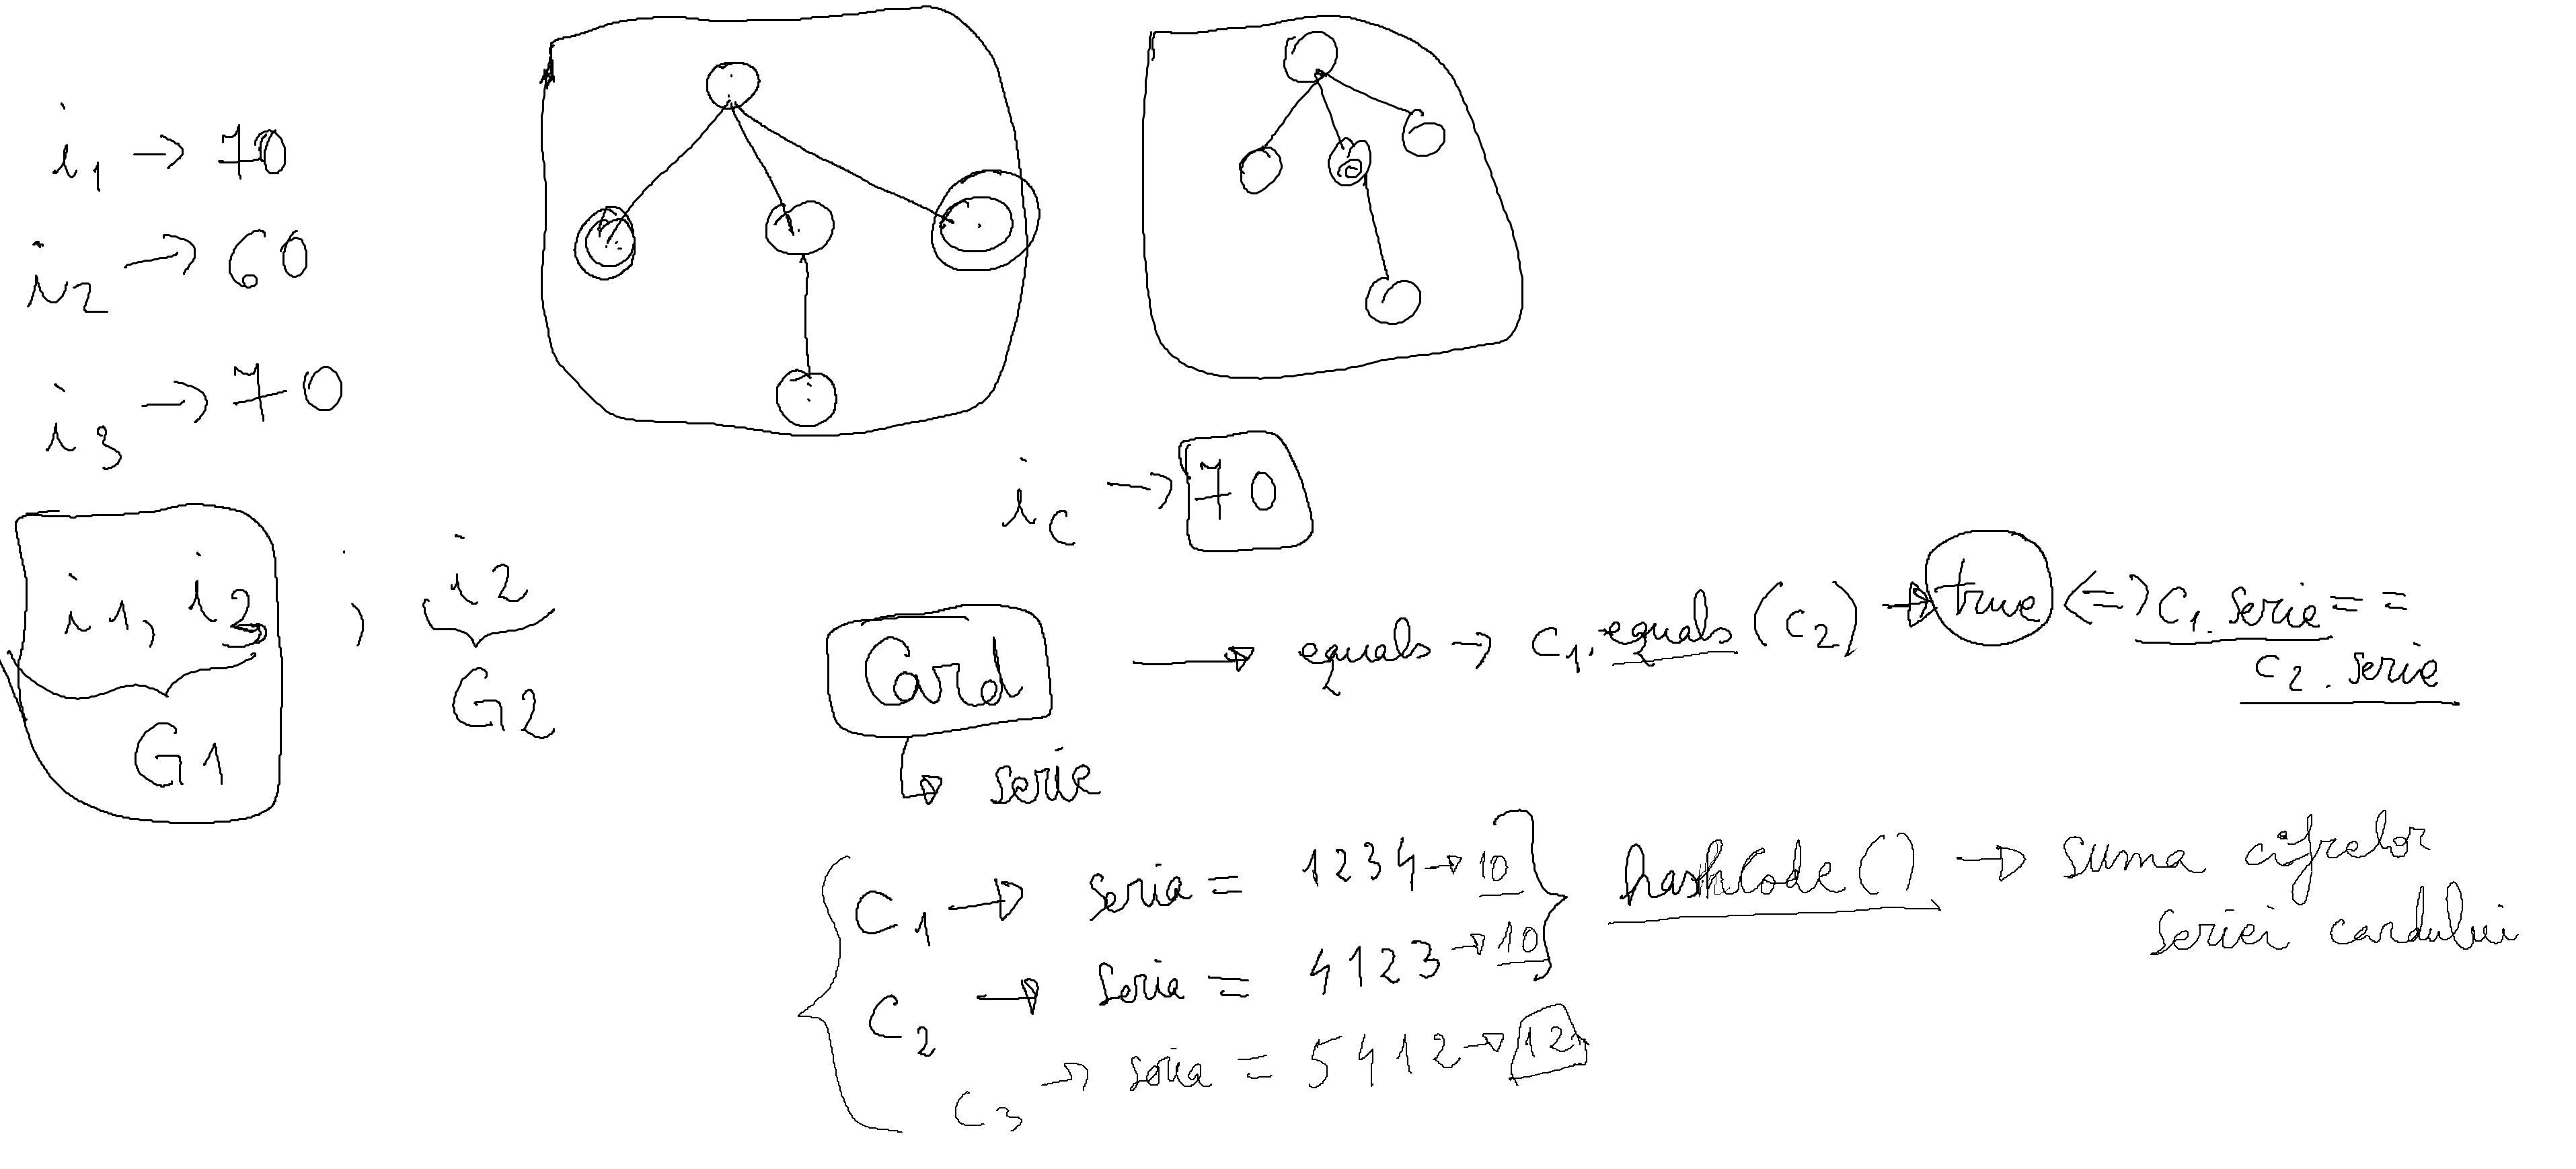 i1 → 70
i2 → 60
i3 → 70
ic → 70
i1, i3 ; i2
G1
G2
Card → equals → C1.equals(C2) → true <=> C1.serie ==
C2.serie
↳ serie
C1 → seria = 1234 → 10
C2 → seria = 4123 → 10
C3 → seria = 5412 → 12
hashCode() → suma cifrelor
seriei cardului